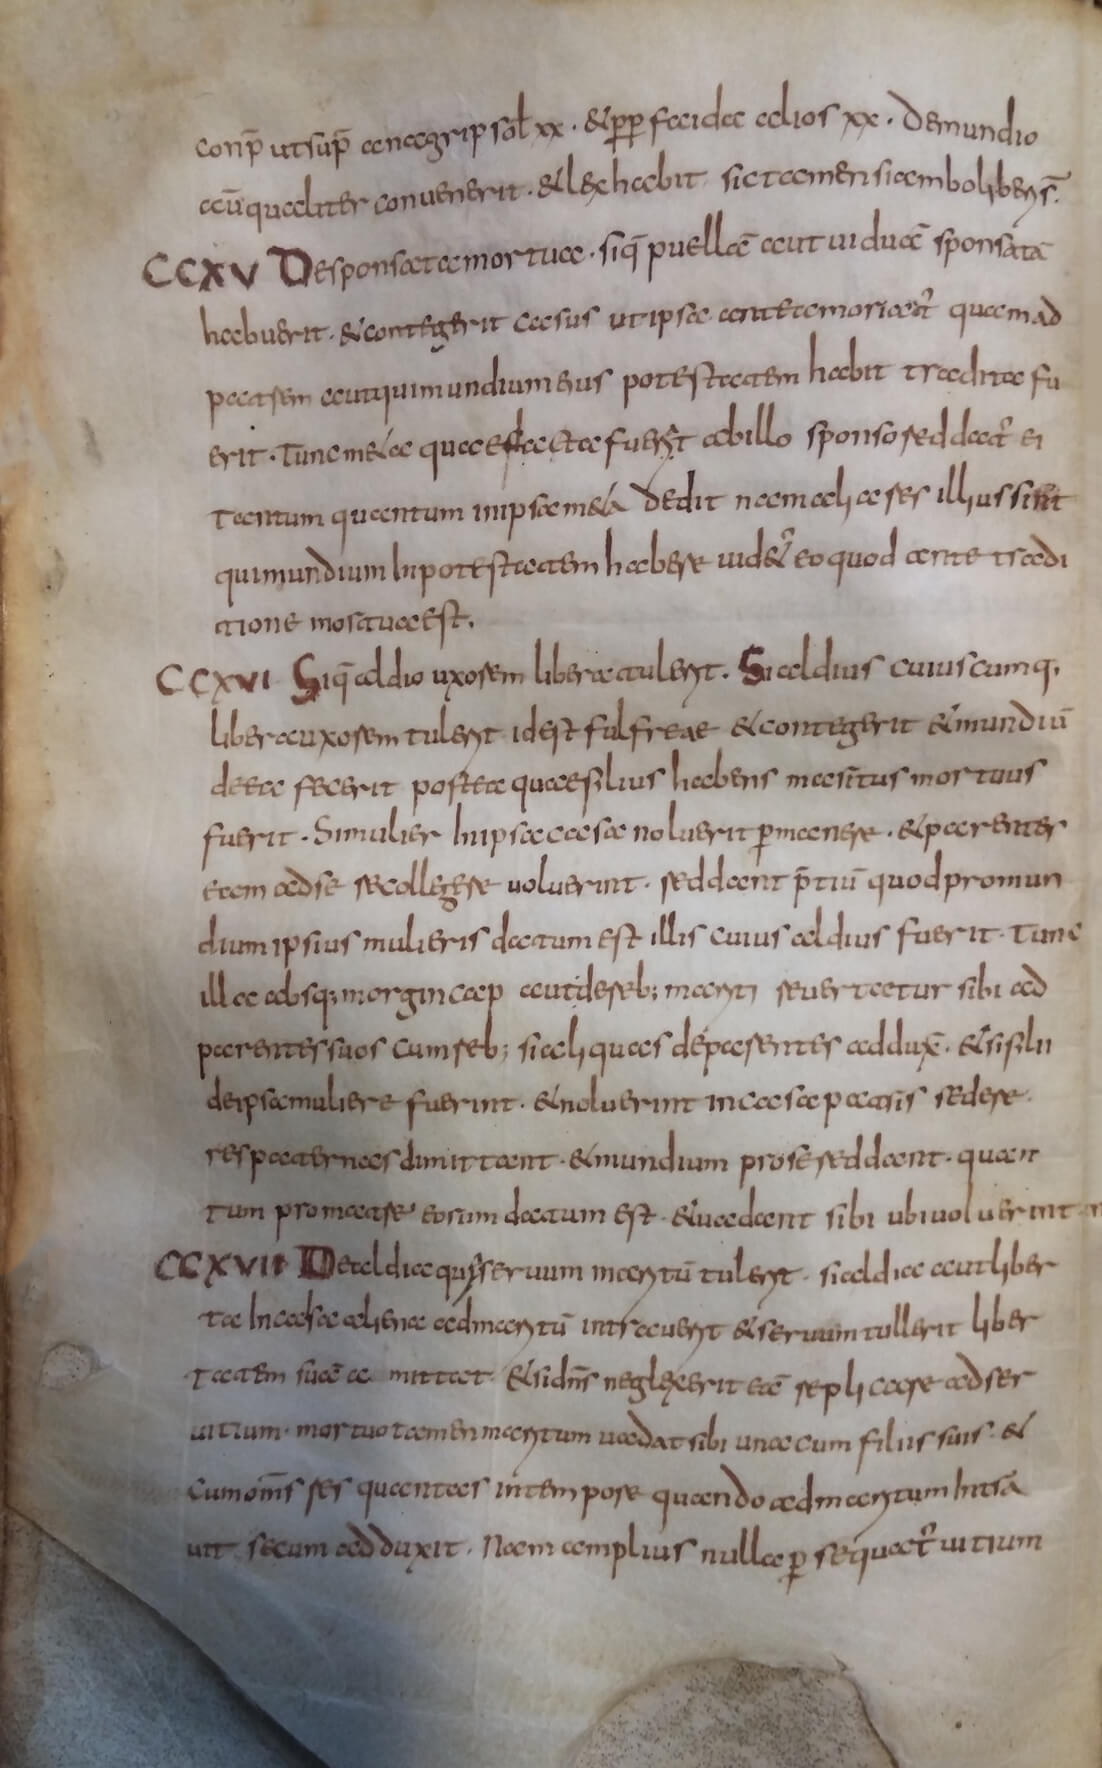 conp̄ ut sup̄ anagrip sol xx · & ꝓp faida alios xx · De mundio
aū qualiter convenerit · & lex habit sic tamen si ambo liberi s̄.
CCXV Desponsata mortua · siq̄ puellā aut viduā sponsatā
habuerit · & contegerit casus ut ipsa ante moriat̄ quam ad
patrem aut qui mundium eius potestatem habit tradita fu
erit · Tunc m&a quae facta fuer̄t ab illo sponso reddat̄ ei
tantum quantum in ipsa m&a dedit nam aliae res illius sint
qui mundium in potestatem habere vid&̄ eo quod ante tradi
tione mortua est.
CCXVI Siq̄ aldio uxorem libera tulerit. Si aldius cuiuscumq.
libera uxorem tulerit id est fulfreae & contegerit & mundiū
de ea fecerit postea quae filius habens maritus mortuus
fuerit · Si mulier in ipsa casa noluerit ꝑmanere · & parenter
eam ad se recollegere voluerint · reddant p̄tiū quod pro mun
dium ipsius mulieris datum est illis cuius aldius fuerit · Tunc
illa absq; morgincap aut de reb; mariti revertatur sibi ad
parentes suos cum reb; si aliquas de parentes adduxē · & si filii
de ipsa muliere fuerint · & noluerint in casa patris sedere
res paternas dimittant · & mundium pro se reddant · quan
tum pro matre eorum datum est · & vadant sibi ubi voluerint
CCXVII De aldia qui servum maritū tulerit · si aldia aut liber
ta in casa aliena ad maritū intraverit & servum tullerit liber
tatem suā a mittat & si dn̄s neglexerit eā replicare ad ser
vitium · mortuo tamen maritum vadat sibi una cum filiis suis · &
cum om̄s res quantas in tempore quando ad maritum intrā
vit secum adduxit · Nam amplius nulla ꝑ sequat̄ vitium